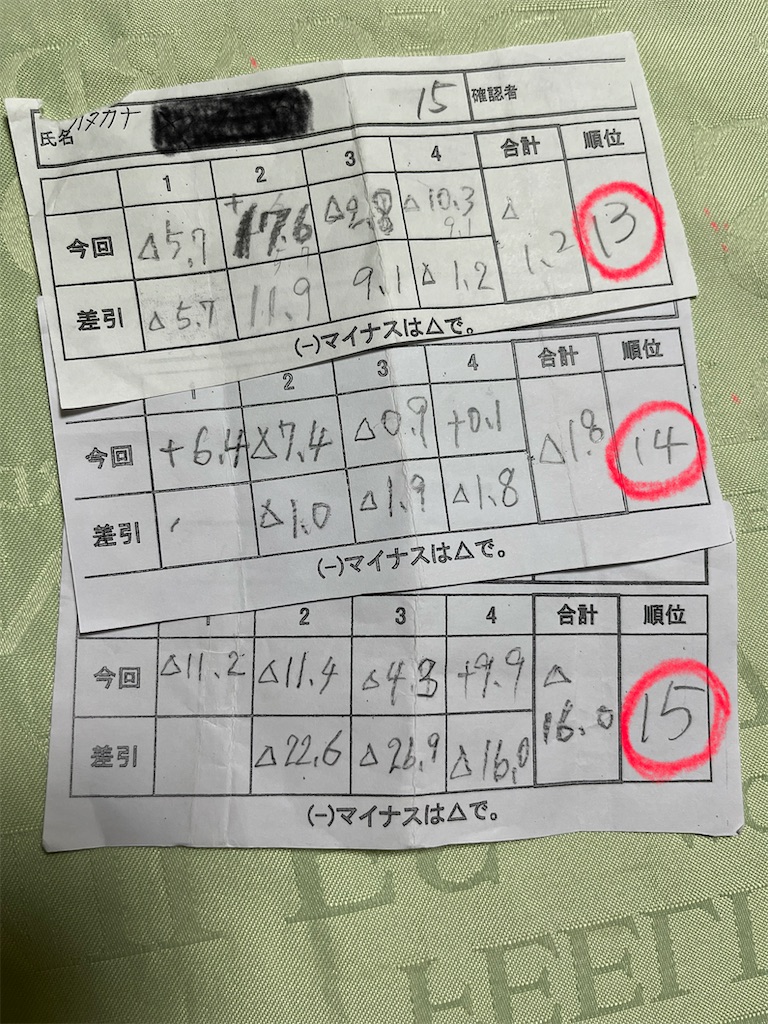 氏名 カタカナ 15 確認者
1 2 3 4 合計 順位
今回 △5.7 +17.6 △2.8 △10.3 △1.2 13
差引 △5.7 11.9 9.1 △1.2
(-)マイナスは△で。
1 2 3 4 合計 順位
今回 +6.4 △7.4 △0.9 +0.1 △1.8 14
差引 △1.0 △1.9 △1.8
(-)マイナスは△で。
1 2 3 4 合計 順位
今回 △11.2 △11.4 △4.3 +9.9 △16.0 15
差引 △22.6 △26.9 △16.0
(-)マイナスは△で。